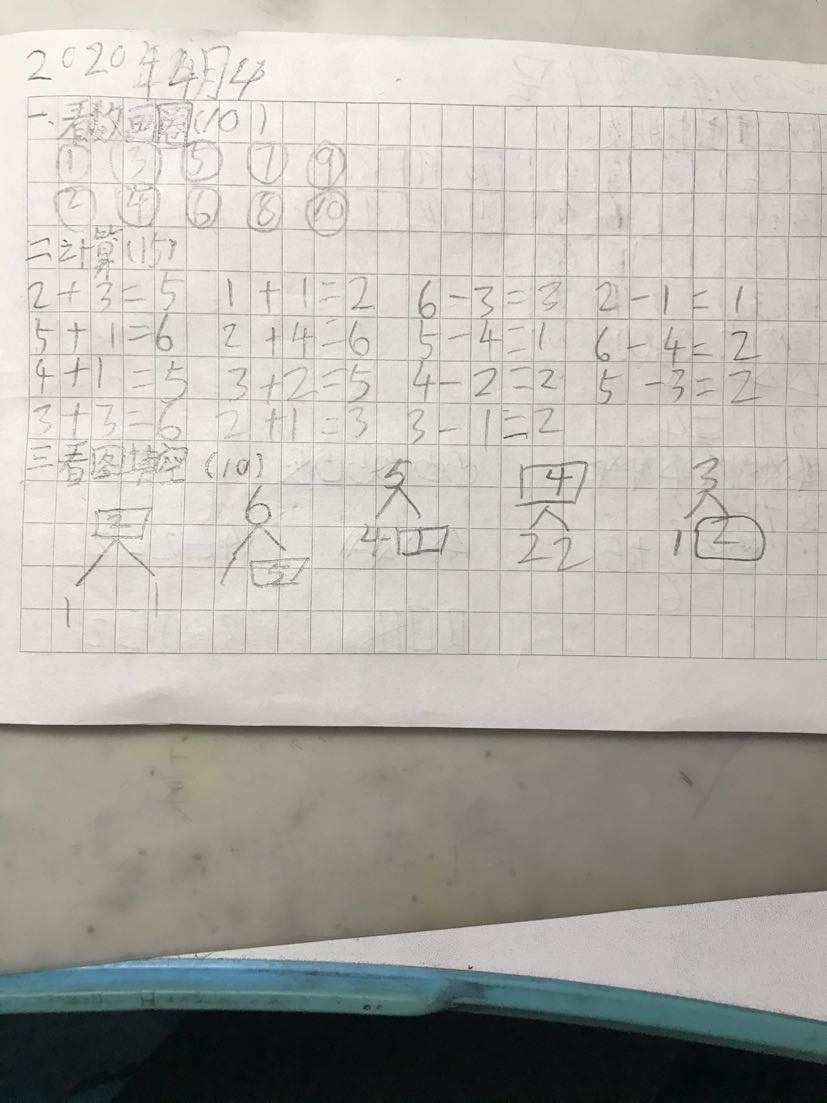 2020年4月4
一、看数画圈(10)
① ③ ⑤ ⑦ ⑨
② ④ ⑥ ⑧ ⑩
二计算(15)
2+3=5 1+1=2 6-3=3 2-1=1
5+1=6 2+4=6 5-4=1 6-4=2
4+1=5 3+2=5 4-2=2 5-3=2
3+3=6 2+1=3 3-1=2
三看图填空(10)
2 6 5 4 3
1 1 1 5 4 1 2 2 1 2